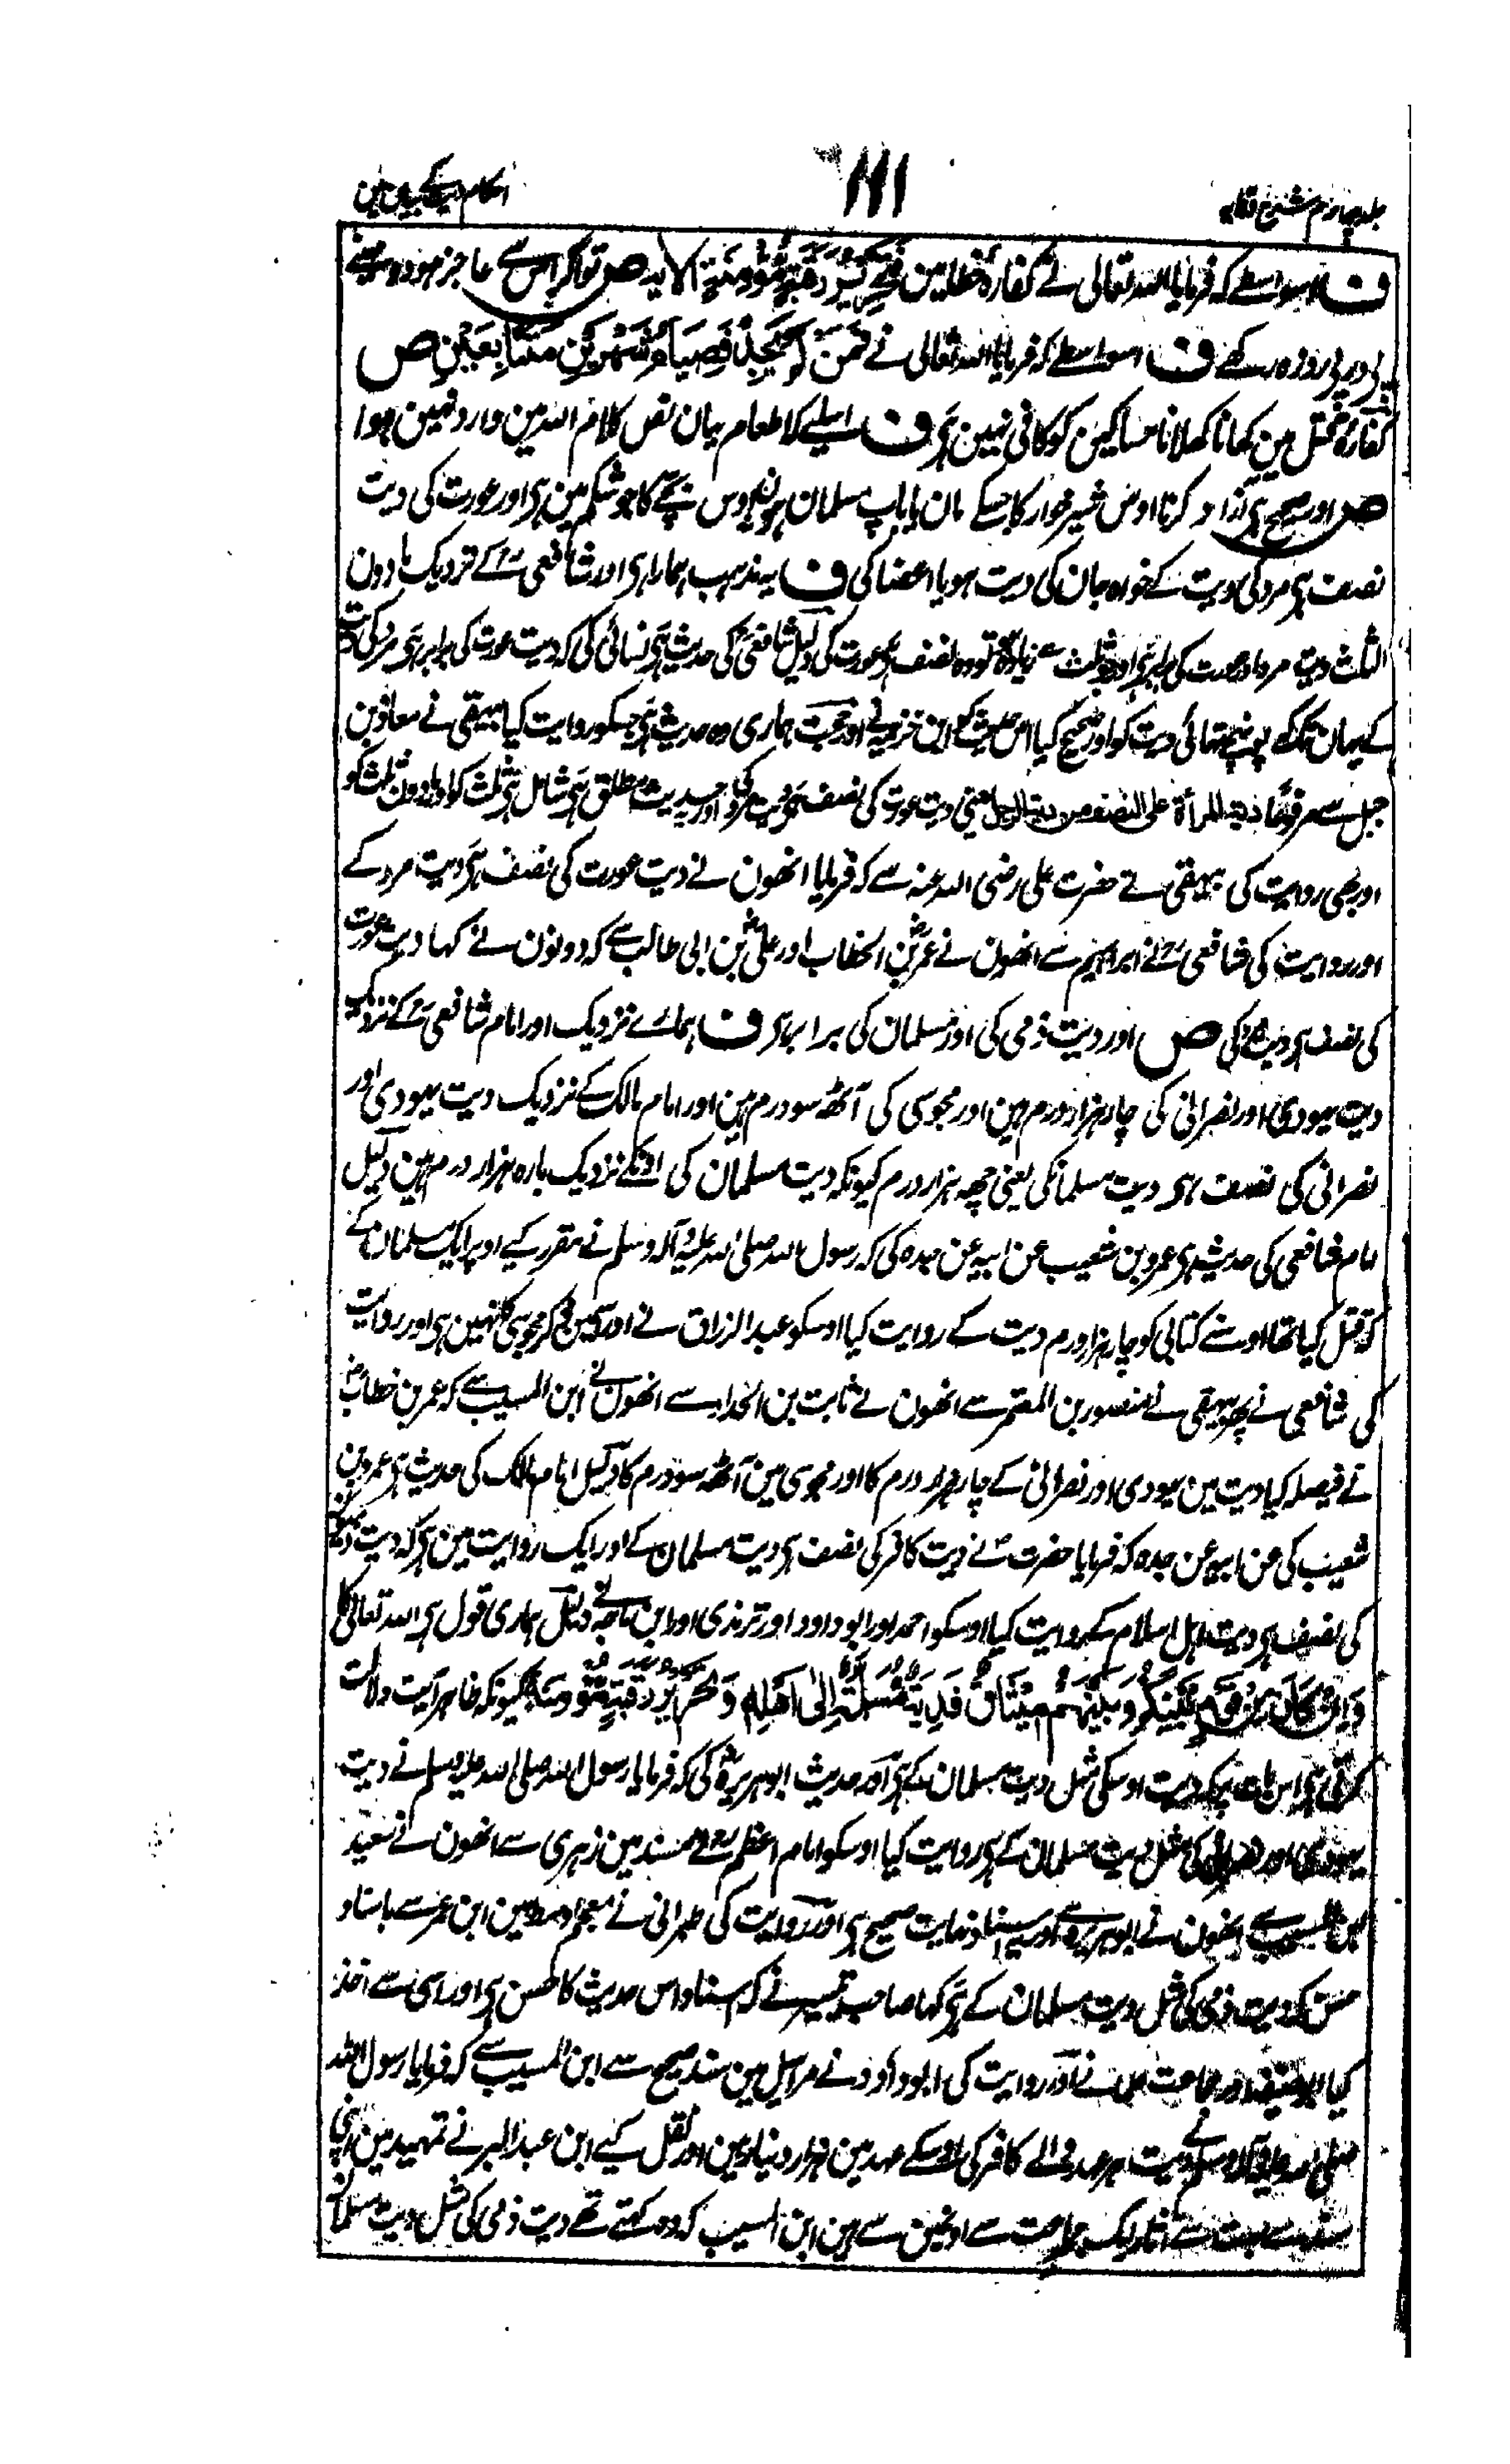 جلد چہارم شرح وقایہ
۱۱۱
احکام دیت کے بیان مین
ف اسواسطے کہ فرمایا اللہ تعالی نے کفارہ خطا مین فَتَحْرِیْرُ رَقَبَةٍ مُّؤْمِنَةٍ الآیہ ص تو اگر اس سے عاجز ہو دو مہینے
پی در پی روزہ رکھے ف اسواسطے کہ فرمایا اللہ تعالی نے فَمَنْ لَّمْ یَجِدْ فَصِیَامُ شَهْرَیْنِ مُتَتَابِعَیْنِ ص
کفارۂ قتل مین کھانا کھلانا مساکین کو کافی نہین ہی ف اسلیے کہ اطعام یہان نص کلام اللہ مین وارد نہین ہوا
ص اور صحیح ہی آزاد کرنا اوس شیر خوار کا جسکے مان یا باپ مسلمان ہو نہ اوس بچے کا جو شکم مین ہی اور عورت کی دیت
نصف ہی مرد کی دیت کے خواہ جان کی دیت ہو یا اعضا کی ف یہ مذہب ہمارا ہی اور شافعی رح کے نزدیک مادون
الثلث دیت مرد اور عورت کی برابر ہی اور جو ثلث سے زیادہ ہی تو وہ نصف ہی عورت کی دلیل شافعی رح کی حدیث ہی نسائی کی کہ دیت عورت کی برابر ہی مرد کی دیت
کے یہان تک کہ پہنچے تہائی دیت کو اور صحیح کیا اس حدیث کو ابن خزیمہ نے اور حجت ہماری وہ حدیث ہی جسکو روایت کیا بیہقی نے معاذ بن
جبل سے مرفوعًا دیة المرأة علی النصف من دیة الرجل یعنی دیت عورت کی نصف ہی دیت مرد کی اور یہ حدیث مطلق ہی شامل ہی ثلث کو اور مادون ثلث کو
اور بھی روایت کی بیہقی نے حضرت علی رضی اللہ عنہ سے کہ فرمایا انھون نے دیت عورت کی نصف ہی دیت مرد کے
اور روایت کی شافعی رح نے ابراہیم سے انھون نے عمر بن الخطاب اور علی بن ابی طالب سے کہ دونون نے کہا دیت عورت
کی نصف ہی دیت مرد کی ص اور دیت ذمی کی اور مسلمان کی برابر ہی ف ہمارے نزدیک اور امام شافعی رح کے نزدیک
دیت یہودی اور نصرانی کی چار ہزار درم ہین اور مجوسی کی آٹھ سو درم ہین اور امام مالک کے نزدیک دیت یہودی اور
نصرانی کی نصف ہی دیت مسلمانکی یعنی چھہ ہزار درم کیونکہ دیت مسلمان کی اونکے نزدیک بارہ ہزار درم ہین دلیل
امام شافعی کی حدیث ہی عمرو بن شعیب عن ابیہ عن جدہ کی کہ رسول اللہ صلی اللہ علیہ وآلہ وسلم نے مقرر کیے اوپر ایک مسلمان کے
کہ قتل کیا تھا اوسنے کتابی کو چار ہزار درم دیت کے روایت کیا اوسکو عبد الرزاق نے اور اسمین ذکر مجوسی کا نہین ہی اور روایت
کی شافعی نے پھر بیہقی نے منصور بن المعتمر سے انھون نے ثابت بن الحداد سے انھون نے ابن المسیب سے کہ عمر بن خطاب رض
نے فیصلہ کیا دیت مین یہودی اور نصرانی کے چار ہزار درم کا اور مجوسی مین آٹھ سو درم کا دلیل امام مالک کی حدیث ہی عمرو بن
شعیب کی عن ابیہ عن جدہ کہ فرمایا حضرت نے دیت کافر کی نصف ہی دیت مسلمان کے اور ایک روایت مین ہی کہ دیت
کی نصف ہی دیت اہل اسلام کے روایت کیا اوسکو احمد اور ابو داود اور ترمذی اور ابن ماجہ نے دلیل ہماری قول ہی اللہ تعالی کا
وَاِنْ کَانَ مِنْ قَوْمٍ بَیْنَکُمْ وَبَیْنَهُمْ مِیْثَاقٌ فَدِیَةٌ مُّسَلَّمَةٌ اِلٰی اَهْلِهٖ وَتَحْرِیْرُ رَقَبَةٍ مُّؤْمِنَةٍ کیونکہ ظاہر آیت دلالت
کرتی ہی اس بات پر کہ دیت اوسکی مثل دیت مسلمان کے ہی اور حدیث ابو ہریرہ کی کہ فرمایا رسول اللہ صلی اللہ علیہ وسلم نے دیت
یہودی اور نصرانی کی مثل دیت مسلمان کے ہی روایت کیا اوسکو امام اعظم رح نے مسند مین زہری سے انھون نے سعید
بن المسیب سے انھون نے ابو ہریرہ سے اور یہ اسناد نہایت صحیح ہی اور روایت کی طبرانی نے معجم اوسط مین ابن عمر سے باسناد
حسن کہ دیت ذمی کی مثل دیت مسلمان کے ہی کہا صاحب تیسیر نے کہ اسناد اس حدیث کا حسن ہی اور اسی سے اخذ
کیا ابو حنیفہ اور جماعت نے اور روایت کی ابو داود نے مراسیل مین سند صحیح سے ابن المسیب سے کہ فرمایا رسول اللہ
صلی اللہ علیہ وآلہ وسلم نے دیت ہر عہد والے کافر کی اوسکے عہد مین ہزار دینار ہین اور نقل کیے ابن عبد البر نے تمہید مین اپنی
سند سے بہت سے آثار ایک جماعت سے اونھین سے ہین ابن المسیب کہ وہ کہتے تھے دیت ذمی کی مثل دیت مسلمان